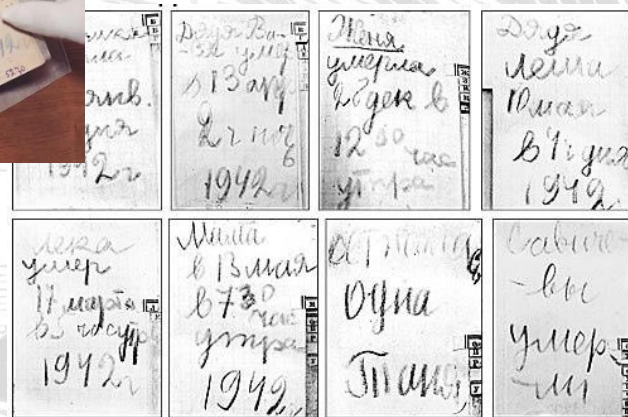 янв.
дня
1942 г
Дядя Ва-
-ся умер
в 13 апр
2 ч ноч
1942 г
Женя
умерла
28 дек в
12 30 час
утра
Дядя
Леша
10 мая
в 4 ч дня
1942
Лека
умер
17 марта
в 5 час утр
1942 г
Мама
в 13 мая
в 7 30 час
утра
1942
Осталась
одна
Таня
Савиче-
-вы
умер-
-ли